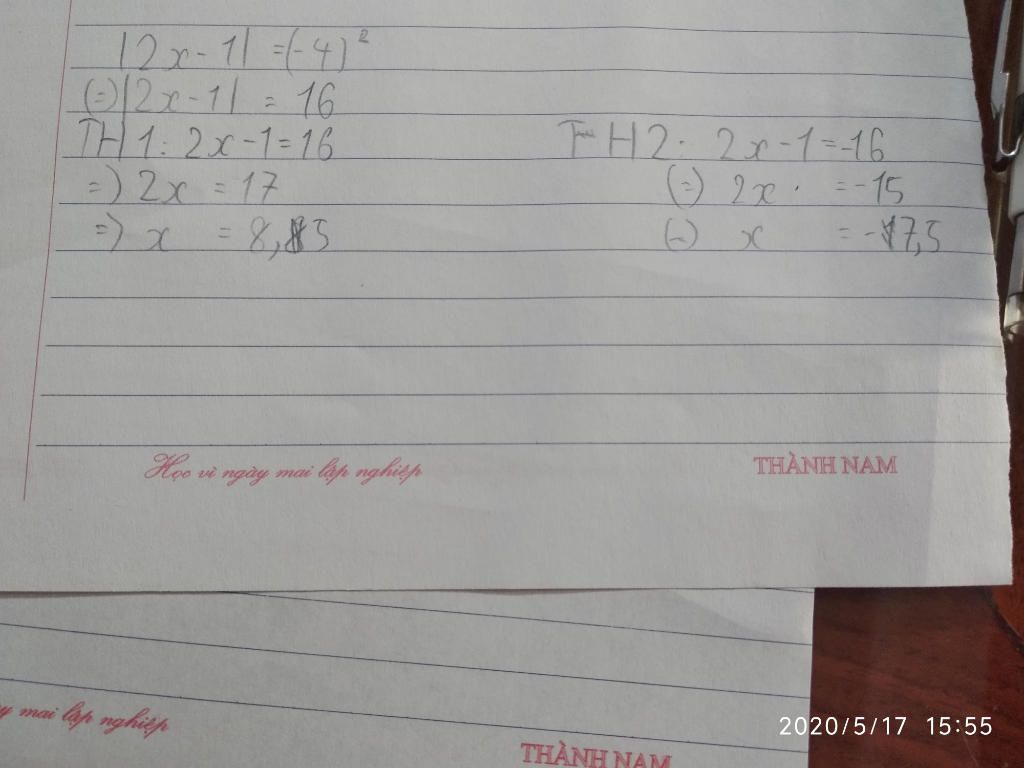 |2x-1| =(-4)²
(=)|2x-1| = 16
TH1: 2x-1=16
=) 2x = 17
=) x = 8,5
TH2: 2x-1=-16
(=) 2x = -15
(=) x = -7,5
Học vì ngày mai lập nghiệp
THÀNH NAM
y mai lập nghiệp
THÀNH NAM
2020/5/17 15:55